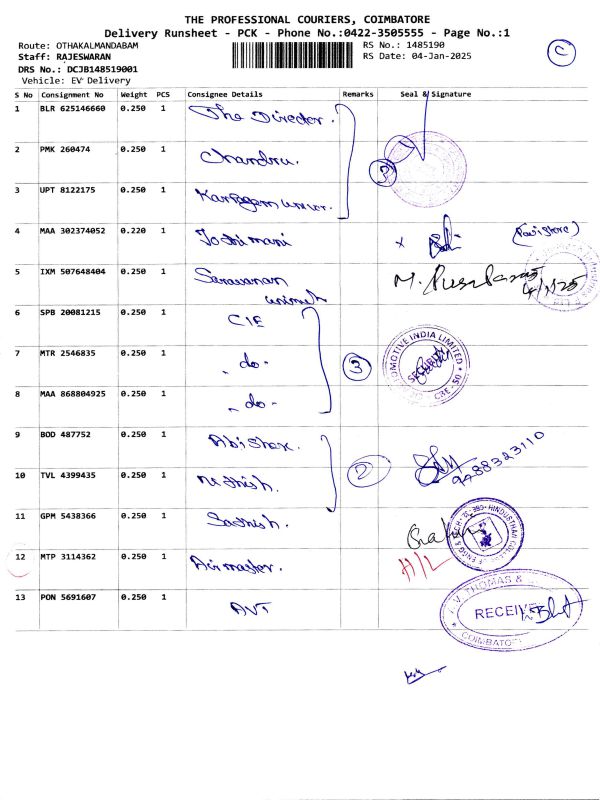 THE PROFESSIONAL COURIERS, COIMBATORE
Delivery Runsheet - PCK - Phone No.:0422-3505555 - Page No.:1
Route: OTHAKALMANDABAM
RS No.: 1485190
Staff: RAJESWARAN
RS Date: 04-Jan-2025
DRS No.: DCJB148519001
Vehicle: EV Delivery
C
S No Consignment No Weight PCS Consignee Details Remarks Seal & Signature
1 BLR 625146660 0.250 1 The Director.
2 PMK 260474 0.250 1 Chandru.
3 UPT 8122175 0.250 1 Karpagam univer.
4 MAA 302374052 0.220 1 Joshimani
5 IXM 507648404 0.250 1 Saravanan
4/1/25
6 SPB 20081215 0.250 1 CIE
3
7 MTR 2546835 0.250 1 - do -
SECURITY
CBE - 50
8 MAA 868804925 0.250 1 - do -
9 BOD 487752 0.250 1 Abishek.
2
9488323110
10 TVL 4399435 0.250 1 Nithish.
11 GPM 5438366 0.250 1 Sathish.
H/L
12 MTP 3114362 0.250 1 Airmaster.
13 PON 5691607 0.250 1 AVT
A.V. THOMAS &
RECEIVE
COIMBATO